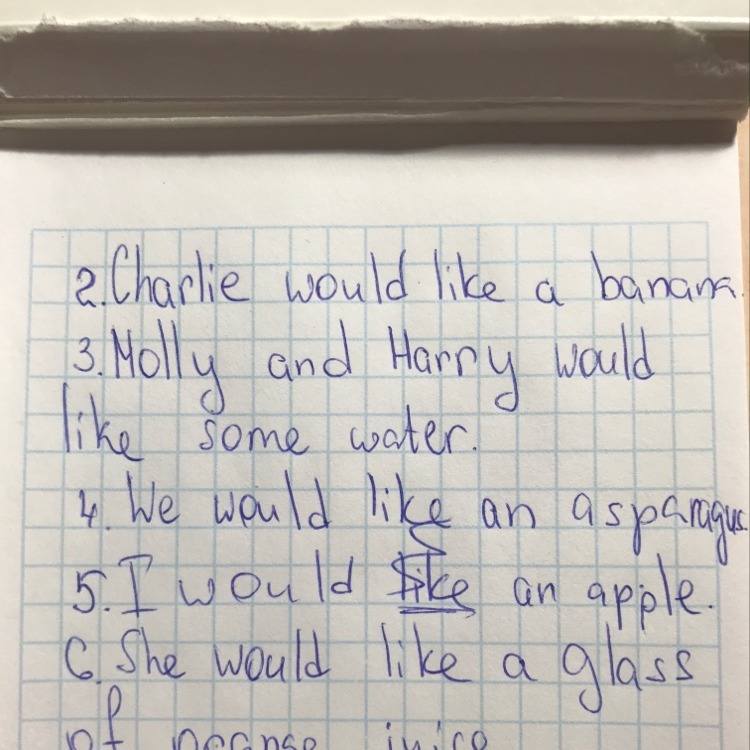 2. Charlie would like a banana.
3. Molly and Harry would
like some water.
4. We would like an asparagus.
5. I would like an apple.
6. She would like a glass
of juice